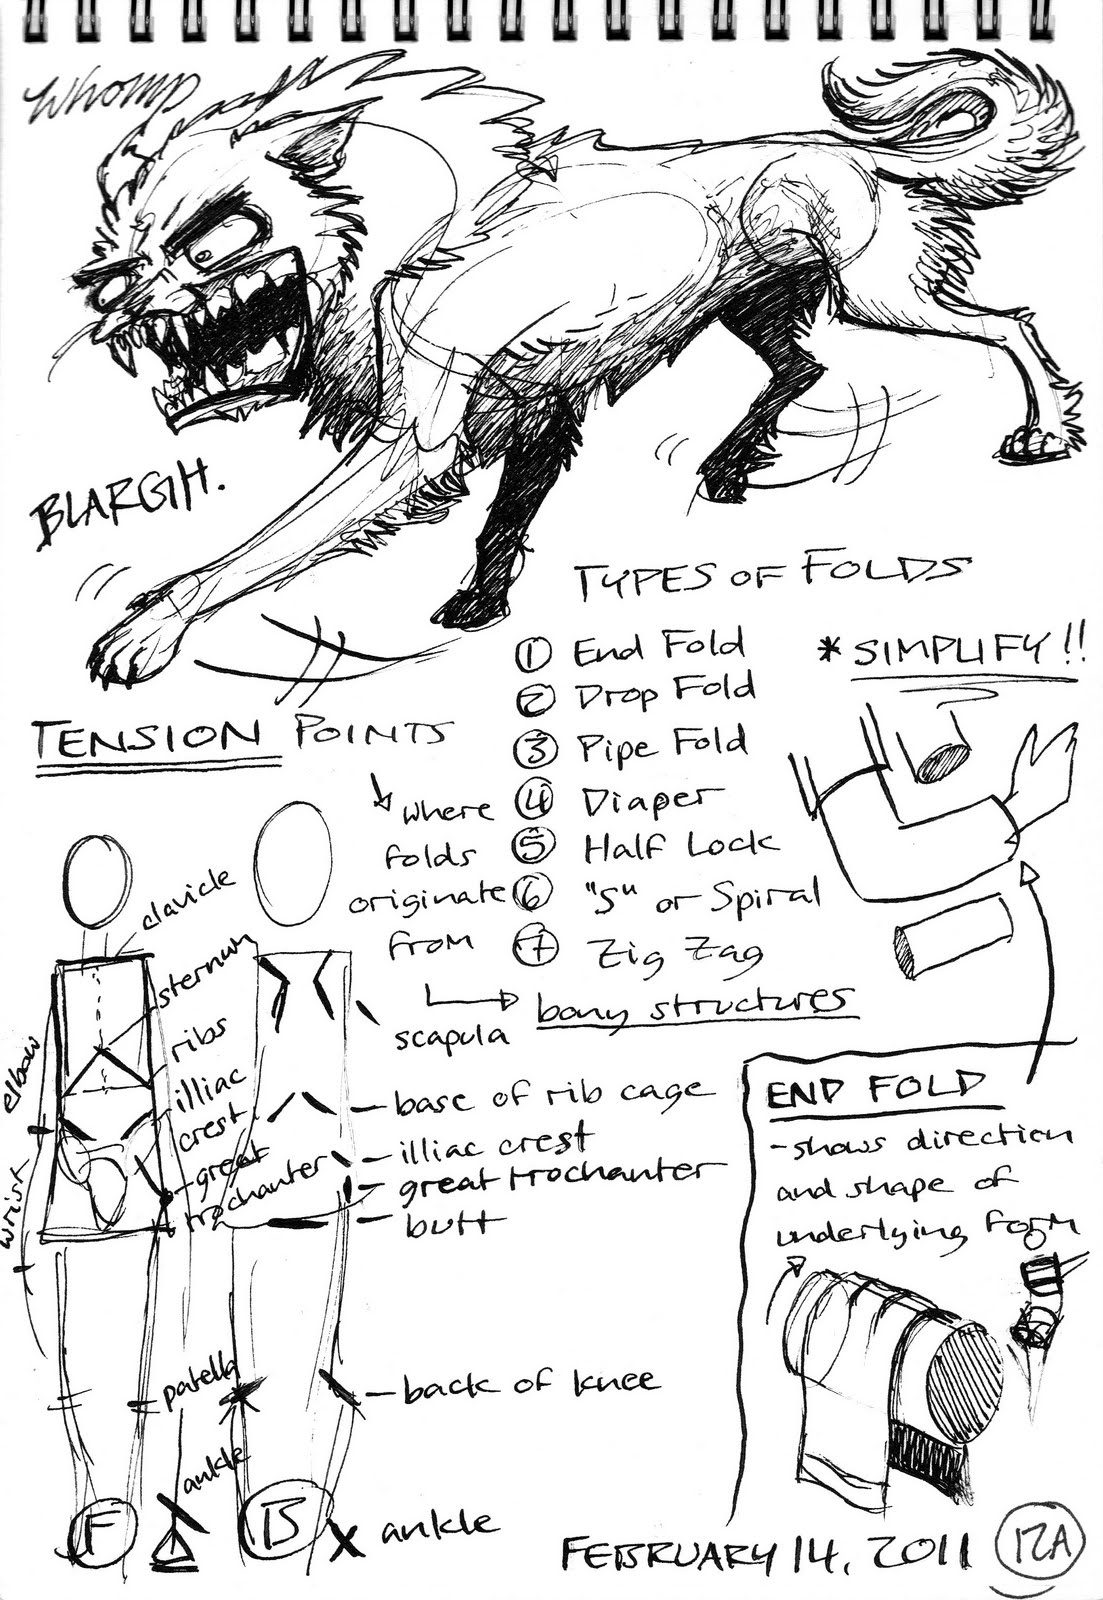 Whomp
BLARGH.
TYPES OF FOLDS
① End Fold
② Drop Fold
③ Pipe Fold
④ Diaper
⑤ Half Lock
⑥ "S" or Spiral
⑦ Zig Zag
* SIMPLIFY!!
TENSION POINTS
where
folds
originate
from
bony structures
clavicle
sternum
ribs
illiac
crest
great
trochanter
elbow
wrist
patella
ankle
F
scapula
base of rib cage
illiac crest
great trochanter
butt
back of knee
B
ankle
END FOLD
-shows direction
and shape of
underlying form
FEBRUARY 14, 2011